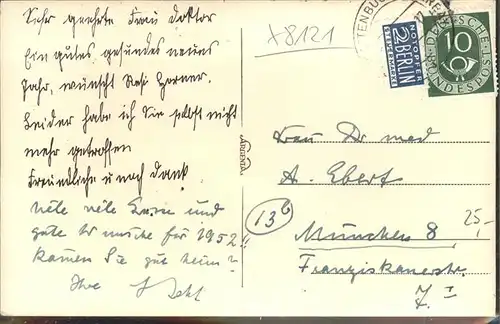 Sehr geehrte Frau Doktor
Ein gutes gesundes neues
Jahr, wünscht Resi Horner.
Leider habe ich Sie selbst nicht
mehr getroffen
Freundliche u noch Dank.
viele viele Grüsse und
gute Wünsche für 1952!!
kamen Sie gut heim?
Ihre
x8121
NOTOPFER
2 BERLIN
STEUERMARKE
DEUTSCHE
10
BUNDESPOST
ARGENTA
Frau Dr med
A. Ebert
13b
München 8
25,-
Franziskanerstr.
7. I